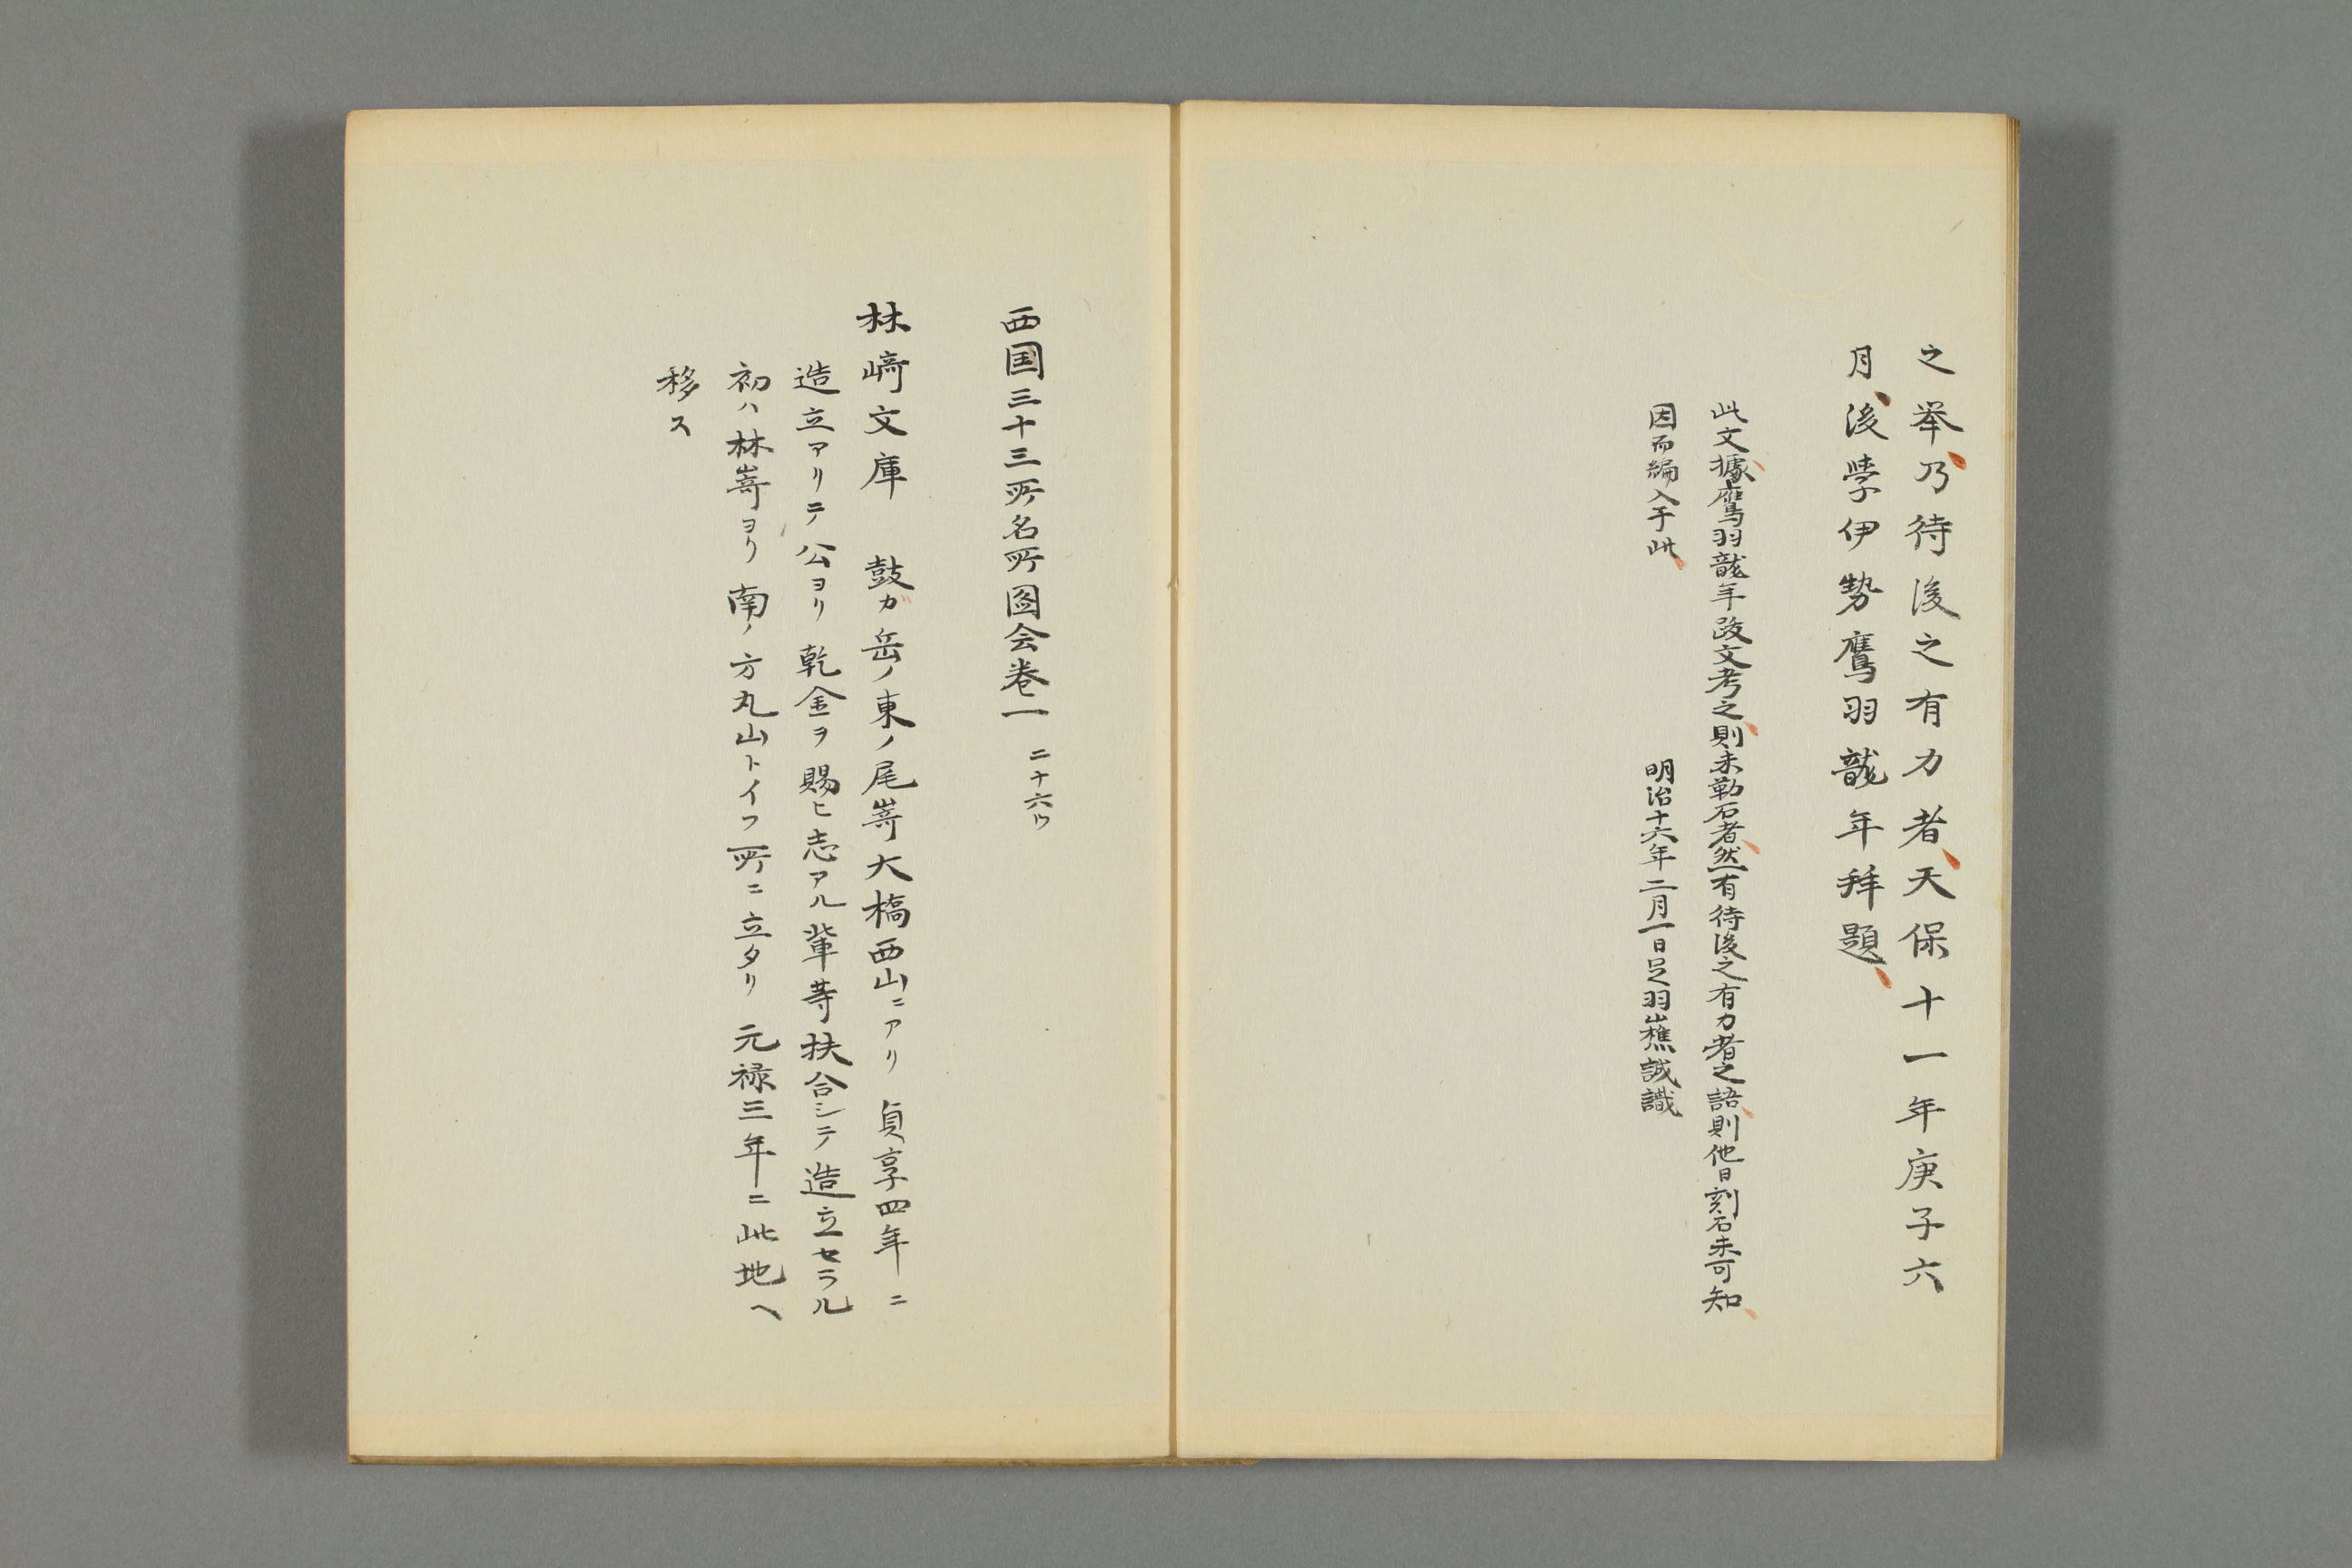 之挙、乃待後之有力者、天保十一年庚子六
月、後学伊勢鷹羽龍年拝題、
此文據、鷹羽龍年跋文考之、則未勒石者、然有待後之有力者之語、則他日刻石未可知、
因而編入于此、　明治十六年二月一日足羽山樵誠識
西国三十三所名所図会巻一　二十六ウ
林﨑文庫　鼓ガ岳ノ東ノ尾嵜大橋西山ニアリ　貞享四年ニ
造立アリテ公ヨリ乾金ヲ賜ヒ志アル輩等扶合シテ造立セラル
初ハ林嵜ヨリ南ノ方丸山トイフ所ニ立タリ　元禄三年ニ此地ヘ
移ス